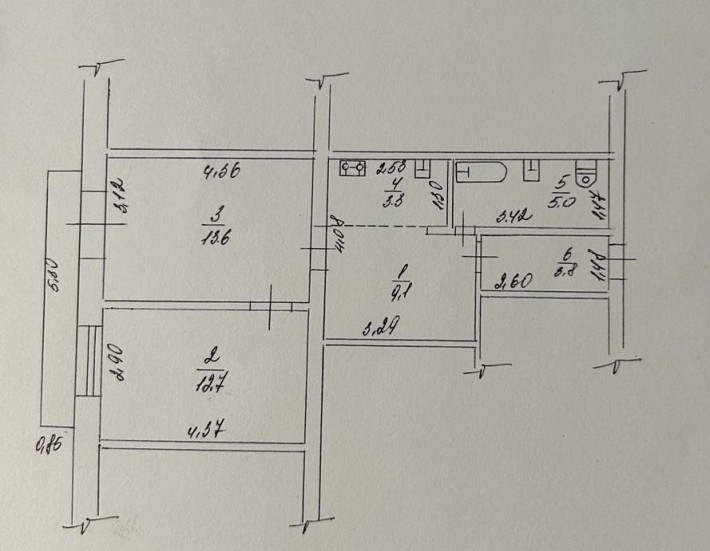 4,36
3,12
3
13.6
5,80
2,90
2
12.7
4,37
0,85
2,53
4
3.3
1,30
4,08
1
9,1
3,29
5
5.0
3,42
1,47
6
3,8
1,48
2,60